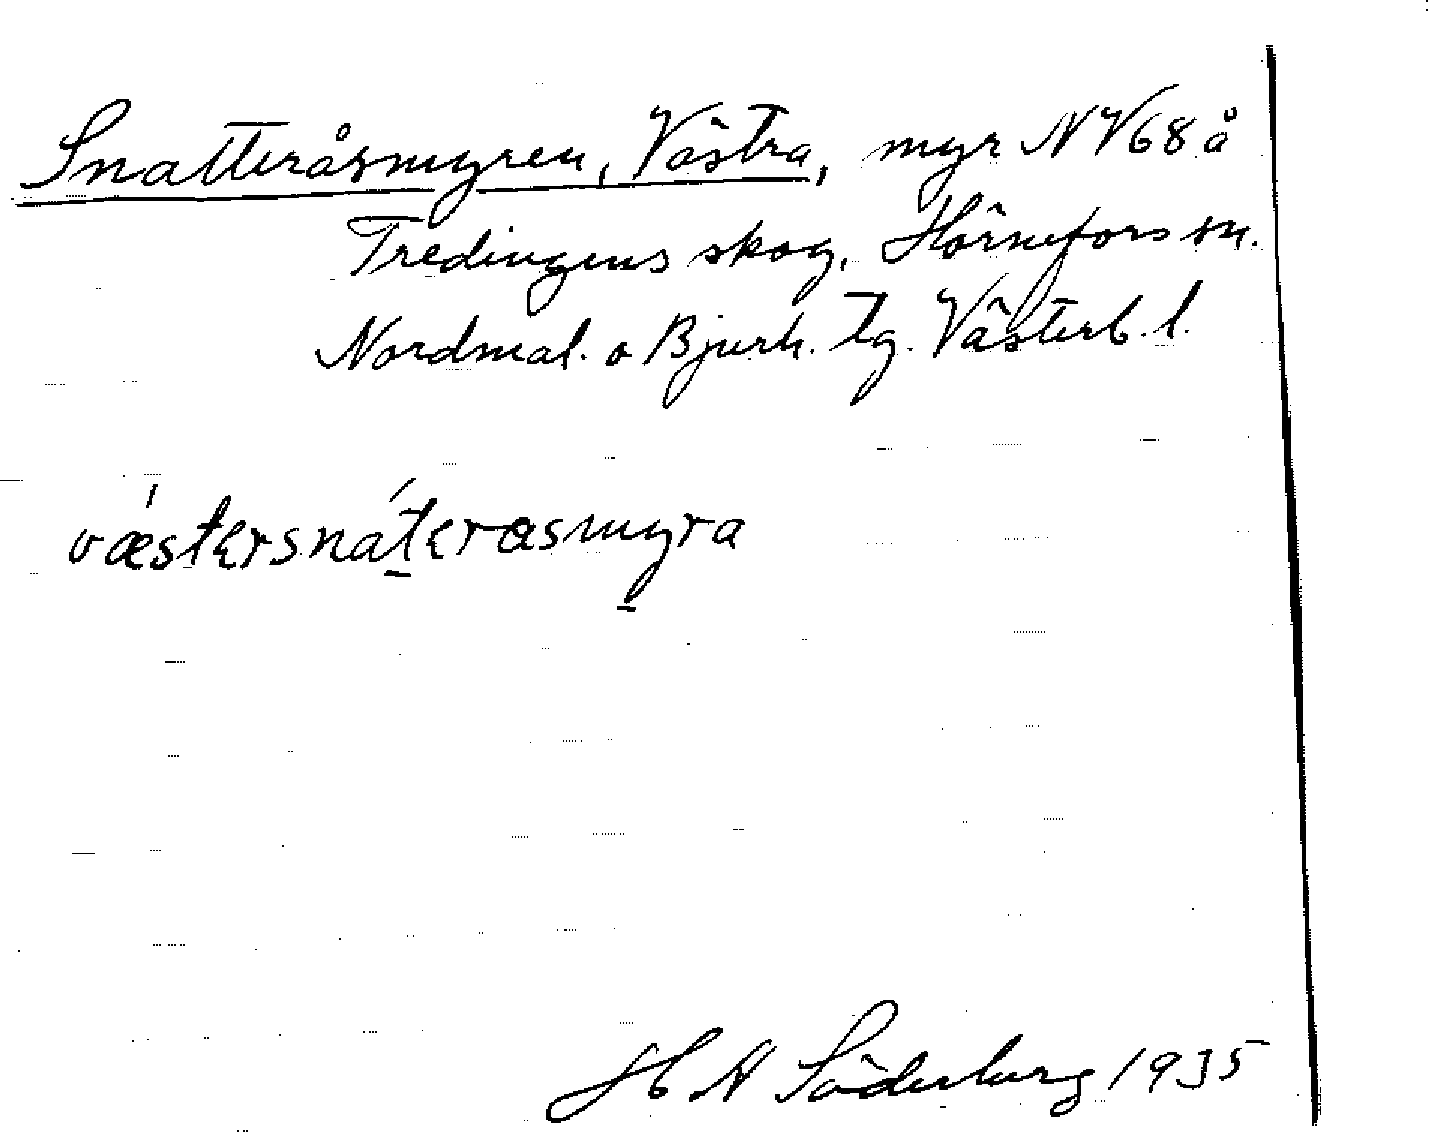 Snatteråsmyren, Västra, myr NV68 å
Tredingens skog, Hörnefors sn.
Nordmal. o Bjurh. tg. Västerb. l.
væstersnáterasmyra
H N Söderberg 1935